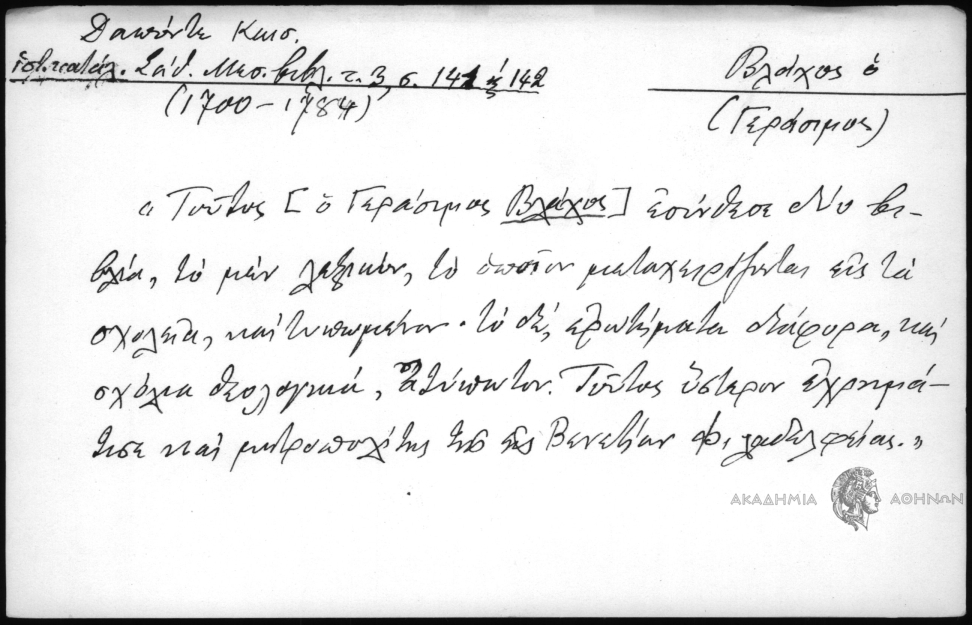 Δαπόντε Καισ.
ἱστ. καταλ. Σάθ. Μεσ. βιβλ. τ. 3, σ. 141 ἢ 142
(1700-1784)
Βλάχος ὁ
(Γεράσιμος)
« Τοῦτος [ὁ Γεράσιμος Βλάχος] ἐσύνθεσε δύο βι-
βλία, τὸ μὲν λεξικόν, τὸ ὁποῖον μεταχειρίζονται εἰς τὰ
σχολεῖα, καὶ τυπωμένον· τὸ δέ, ἐρωτήματα διάφορα, καὶ
σχόλια θεολογικά, ἀτύπωτον. Τοῦτος ὕστερον ἐχρημά-
τισε καὶ μητροπολίτης τῆς εἰς Βενετίαν Φιλαδελφείας. »
ΑΚΑΔΗΜΙΑ ΑΘΗΝΩΝ